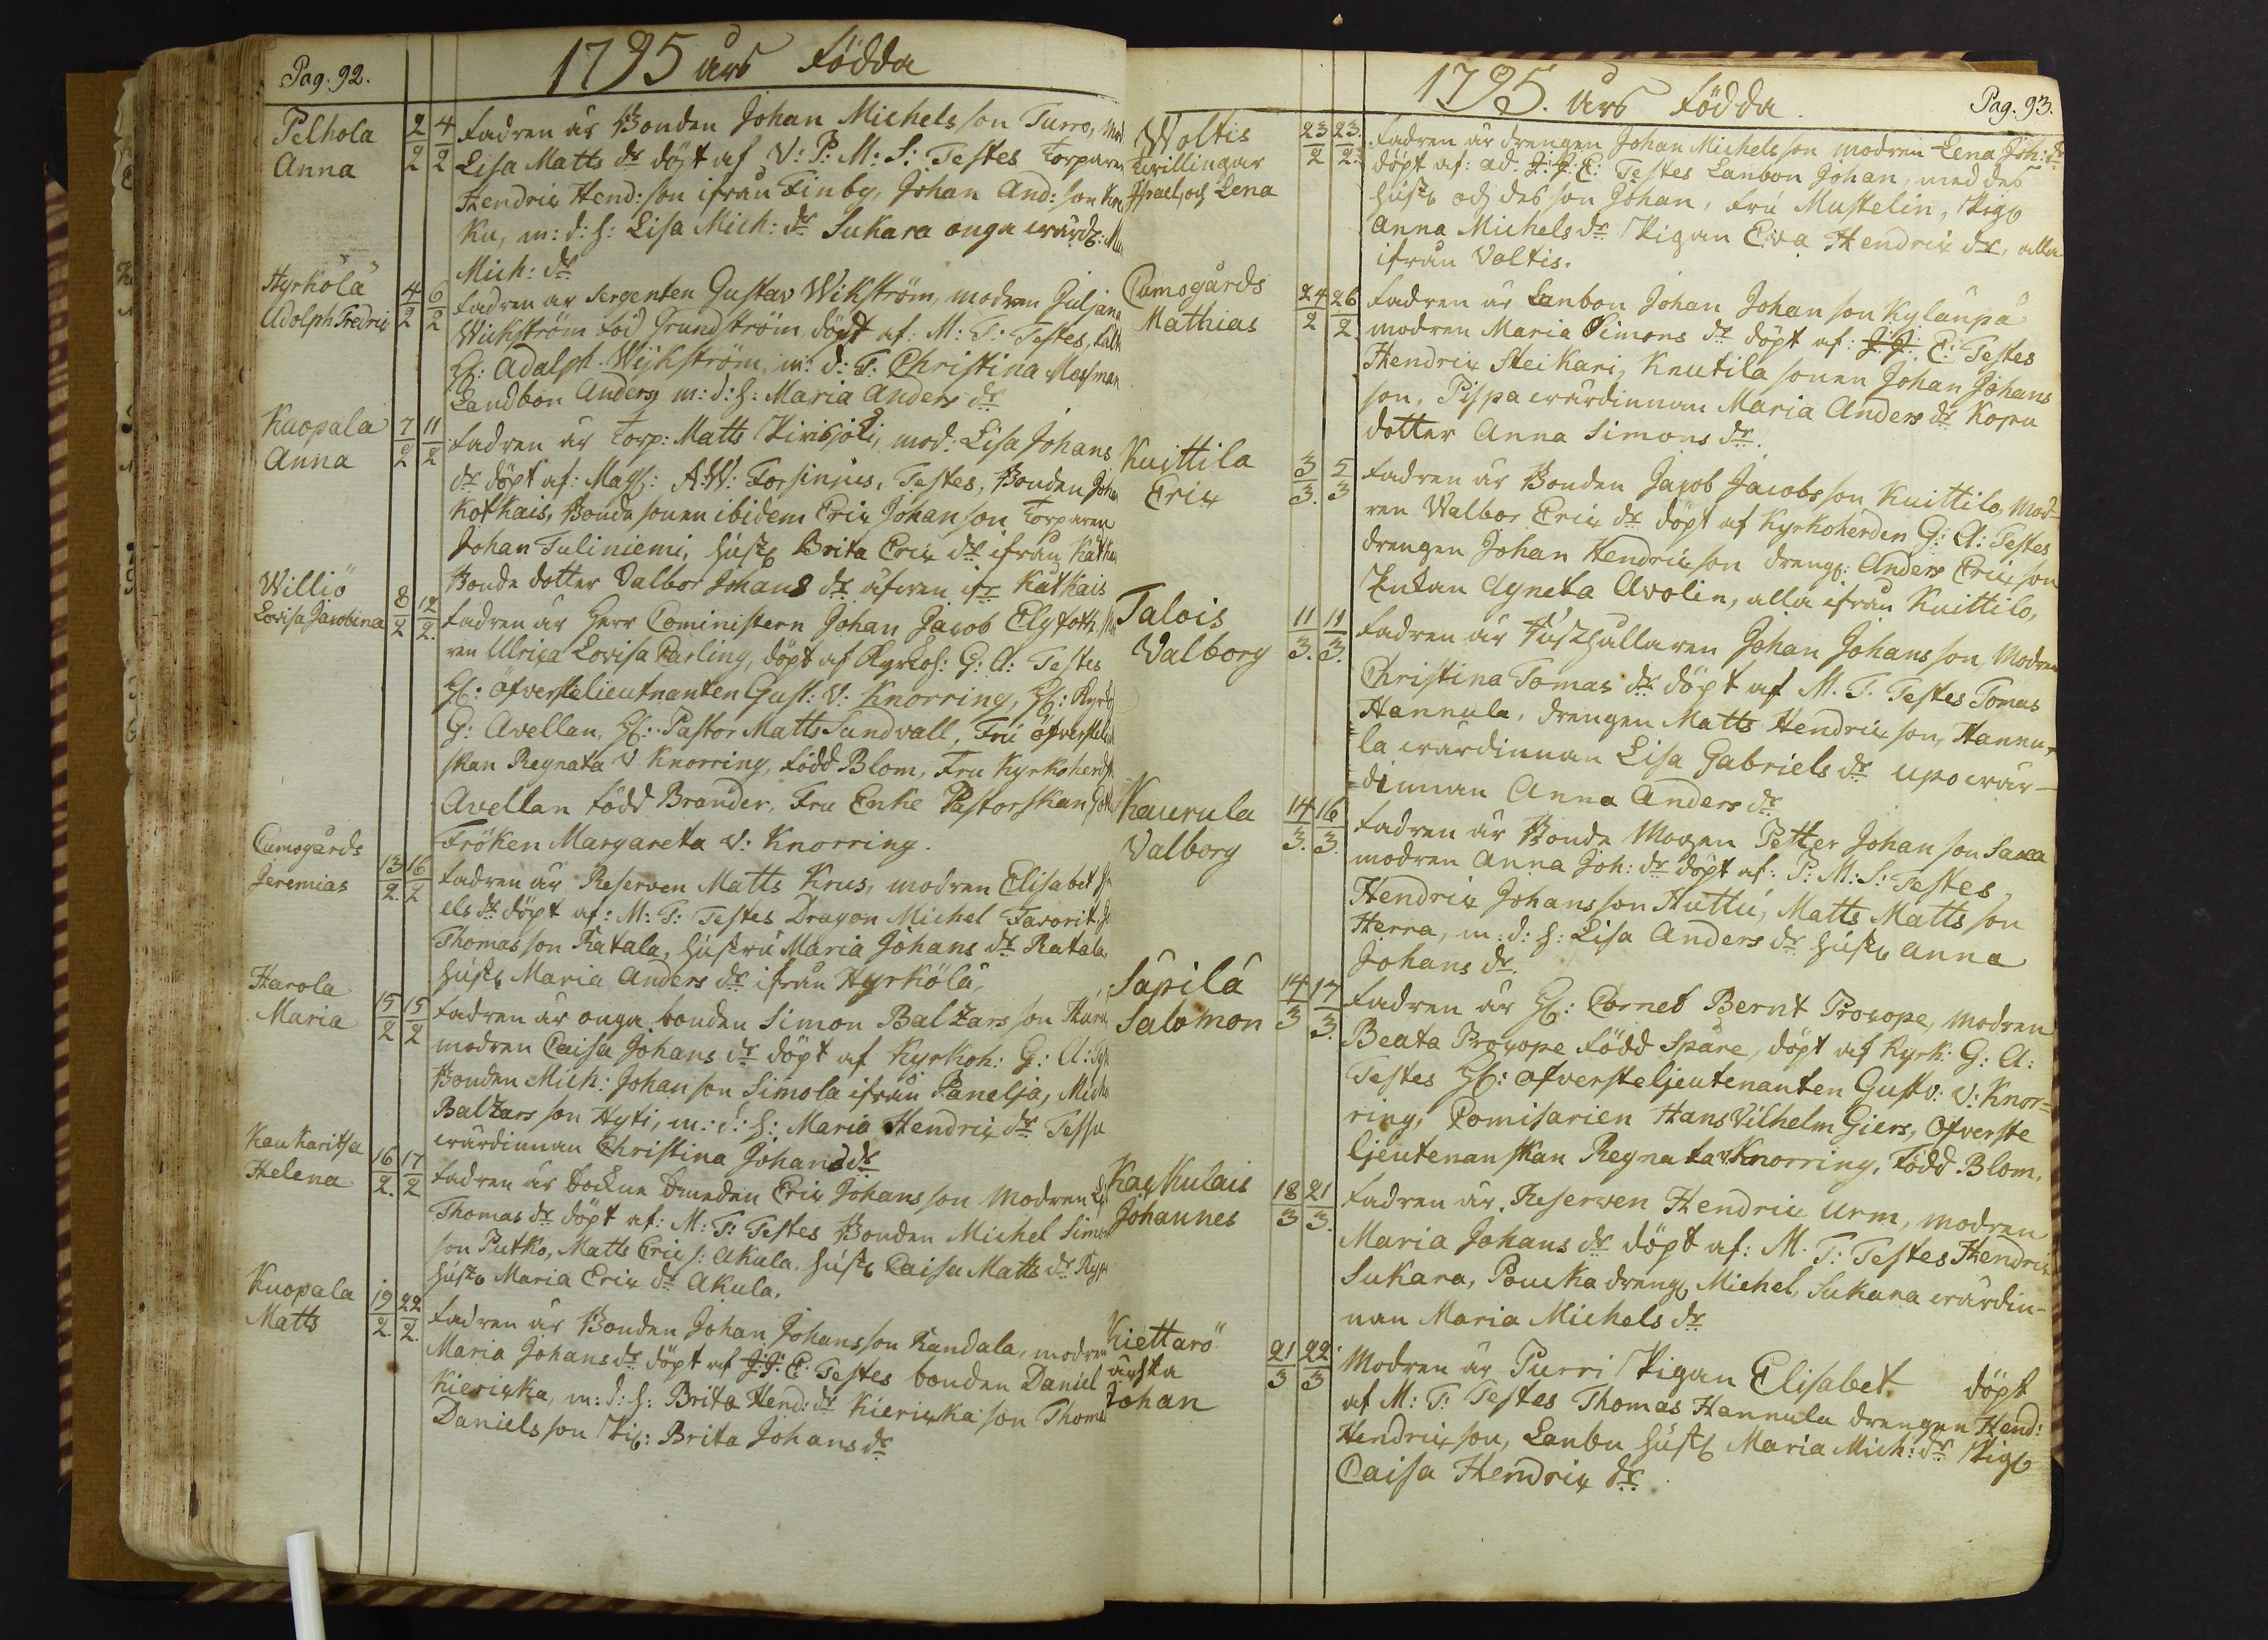 Pag. 92.
1795 års Födda
Pelhola
Anna
2/2 4/2
Fadren är Bonden Johan Michels son Turro, Mod
Lisa Matts dr döpt af V: P: M: S: Testes Torparen
Hendrix Hend: son ifrån Finby, Johan And: son
Ku, m: d: h: Lisa Mich: dr Sukara onga wärd:
Mich: dr
Hyrkölä
Adolph Fredric
4/2 6/2
Fadren är Sergenten Gustav Wikström, modren Guljana
Wickström född Grundström, döpt af M: T: Testes,
H: Adalph Wijkström, m: d: F: Christina Mosman
Landbon Anders m: d: h: Maria Anders dr
Kuopala
Anna
7/2 11/2
Fadren är Torp: Matts Kivisjöli, mod: Lisa Johans
dr döpt af: Mag: A: W: Forsinius, Testes, Bonden Johan
Kotkais, Bonde sonen ibidem Eric Johan son Torparen
Johan Tuliniemi, hustr Brita Eric dr ifrån
Bonde dotter Valbor Johans dr äfwen ifr Katkais
Williö
Lovisa Jacobina
8/2 12/2.
Fadren är Herr Cominstern Johan Jacob Elgfoth,
ren Ulrica Lovisa Carling, döpt af Kyrkoh: G: A: Testes
H: öfverstelieutnanten Gust: V: Knorring, H: Kyrk
G: Avellan, H: Pastor Matts Sundvall, Fru öfverstelieut
skan Regnata V. Knorring, född Blom, Fru Kyrkoherdsk.
Avellan född Brander. Fru Enke Pastorskan
Fröken Margareta V: Knorring.
Cumogårds
Jeremias
13/2. 16/2
Fadren är Reserven Matts Krus, modren Elisabet
els dr döpt af: M: T: Testes Dragon Michel Favorit
Thomas son Ratala, hustru Maria Johans dr Ratala,
hustr Maria Anders dr ifrån Hyrkölä,
Harola
Maria
15/2 15/2
Fadren är onga bonden Simon Baltzars son
modren Caisa Johans dr döpt af Kyrkoh: G: A:
Bonden Mich: Johan son Simola ifrån Panelja,
Baltzars son Hyti, m: d: h: Maria Hendrix dr
wärdinnan Christina Johans dr
Kaukaritsa
Helena
16/2. 17/2
Fadren är Sockne Smeden Eric Johans son Modren
Thomas dr döpt af: M: T: Testes Bonden Michel Simon
son Putko, Matts Eric s: Akula. hustr Caisa Matts dr
hustr Maria Eric dr Akula.
Kuopala
Matts
19/2. 22/2.
Fadren är Bonden Johan Johansson Randala, modren
Maria Johans dr döpt af J: J: E. Testes bonden Daniel
Kiericka, m: d: h: Brita Hend: dr Kiericka son Thomas
Daniels son Pig: Brita Johans dr
1795. års Födda.
Pag. 93.
Woltis
Tvillingar
Israel och Lena
23/2 23/2.
Fadren är drengen Johan Michels son modren Lena Joh: dr
döpt af: ad. J: J: E: Testes Lanbon Johan, med des
hustr och des son Johan, Fru Mustelin, Pig
Anna Michels dr Pigan Eva Hendrix dr, alla
ifrån Voltis.
Cumogårds
Mathias
24/2 26/2
Fadren är Lanbon Johan Johan son Kylänpä
modren Maria Simons dr döpt af: J: J: E: Testes
Hendrix Steikari, Knutila sonen Johan Johans
son, Pispa wärdinnan Maria Anders dr Kopu
dotter Anna Simons dr.
Kuittila
Eric
3/3. 5/3
Fadren är Bonden Jacob Jacobs son Kuittilo, Mod=
ren Walbor Eric dr döpt af Kyrkoherden G: A: Testes
drengen Johan Hendrix son dreng: Anders Eric son
Enkan Agneta Avolin, alla ifrån Kuittilo,
Talois
Valborg
11/3. 11/3.
Fadren är Husshållaren Johan Johans son, Modren
Christina Tomas dr döpt af M. T. Testes Tomas
Hannula, drengen Matts Hendrix son, Hannu,
la wärdinnan Lisa Gabriels dr Upo wär-
dinnan Anna Anders dr
Kaurula
Valborg
14/3. 16/3.
Fadren är Bonde Mogen Petter Johan son Saxa
modren Anna Joh: dr döpt af: P: M: S: Testes,
Hendrix Johans son Huttu, Matts Matts son
Herra, m: d: h: Lisa Anders dr hustr Anna
Johans dr.
Säpilä
Salomon
14/3 17/3.
Fadren är H: Cornet Bernt Procope, modren
Beata Procope född Spåre, döpt af Kyrk: G: A:
Testes H: öfversteljeutenanten Gustv: V: Knor=
ring, Comisarien Hans Vilhelm Giers, Öfverste
ljeutenanskan Regnata v. Knorring, Född Blom,
Kaskulais
Johannes
18/3 21/3.
Fadren är Reserven Hendric Urm, modren
Maria Johans dr döpt af: M. T: Testes Hendric
Sukara, Poucka dreng Michel, Sukara wärdin-
nan Maria Michels dr
Kiettarö
ächta
Johan
21/3 22/3
Modren är Purri Pigan Elisabet döpt
af M: T: Testes Thomas Hannula drengen Hend:
Hendrix son, Lanbu hustr Maria Mich: dr Pig
Caisa Hendrix dr.